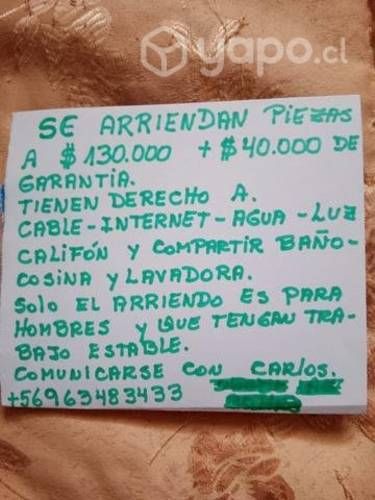 yapo.cl
SE ARRIENDAN PIEZAS
A $130.000 + $40.000 DE
GARANTIA.
TIENEN DERECHO A.
CABLE-INTERNET-AGUA-LUZ
CALIFÓN Y COMPARTIR BAÑO-
COSINA Y LAVADORA.
SOLO EL ARRIENDO ES PARA
HOMBRES Y QUE TENGAN TRA-
BAJO ESTABLE.
COMUNICARSE CON CARLOS.
+56963483433